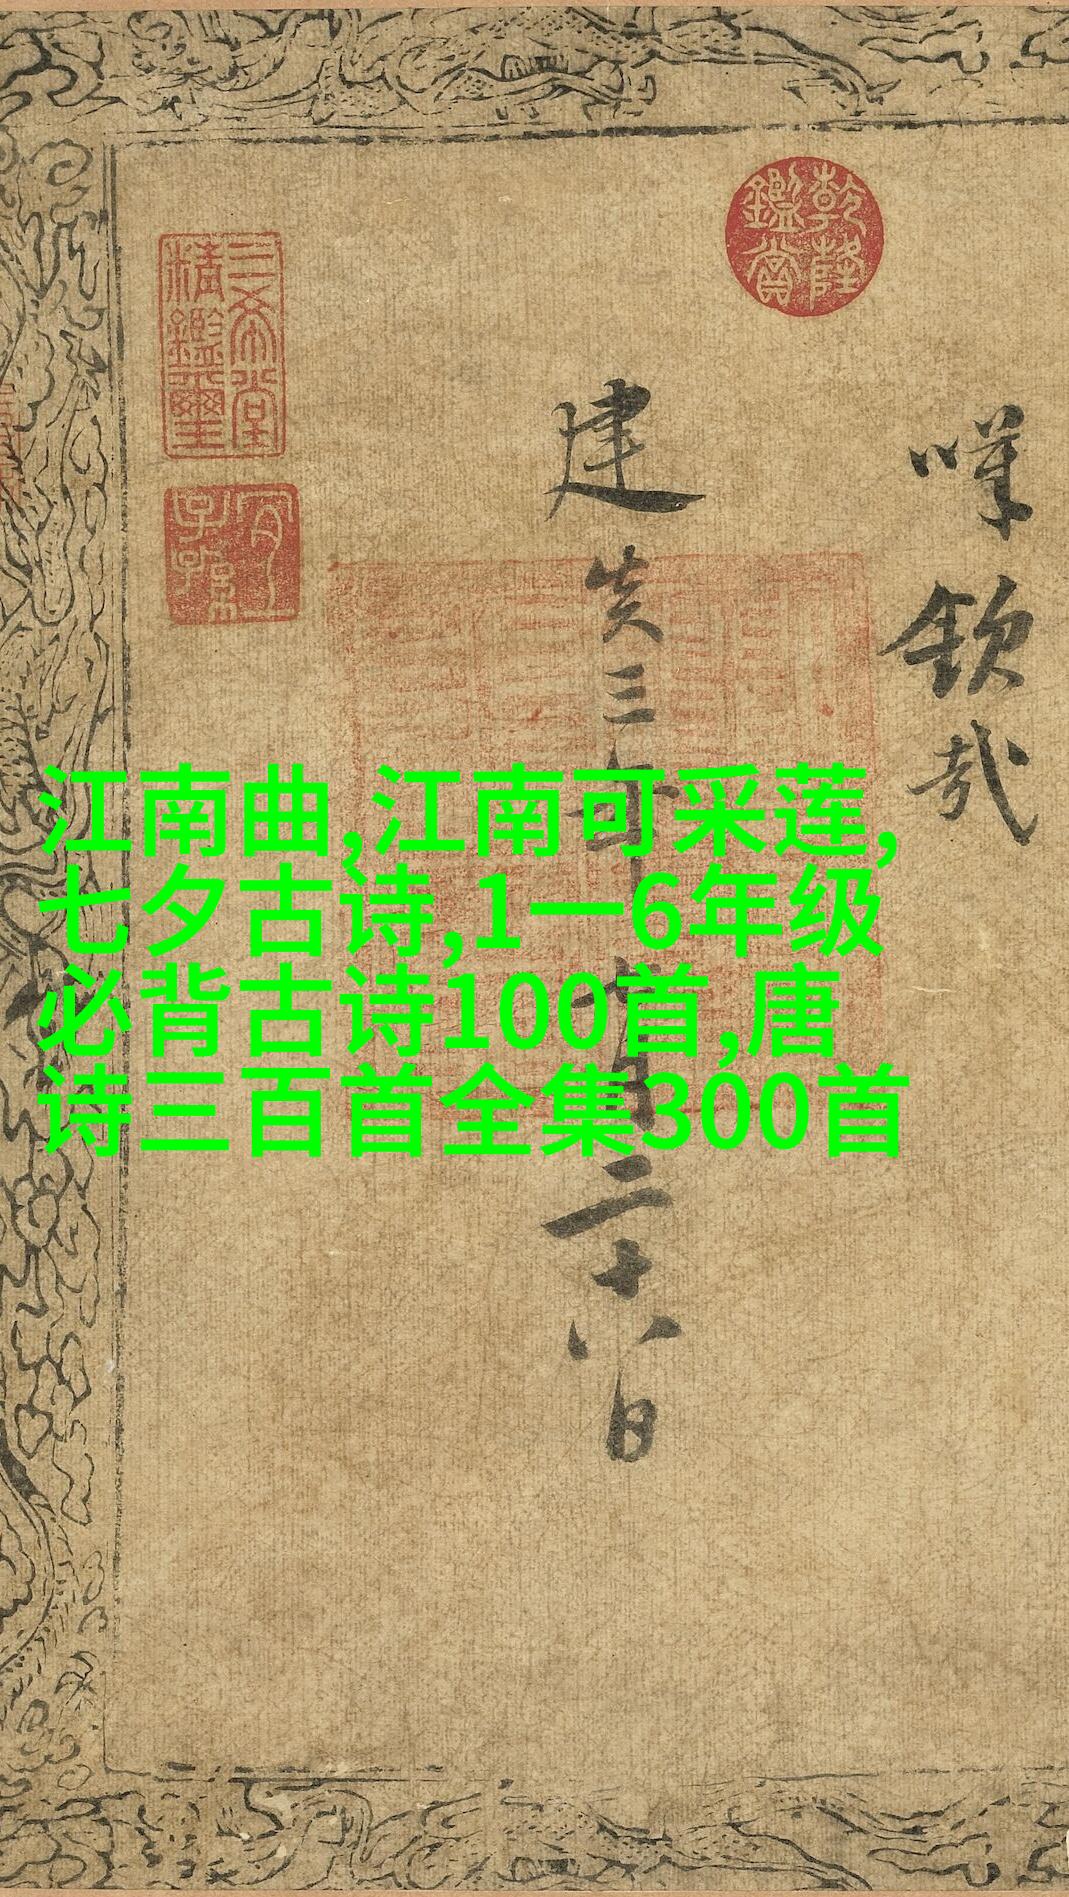 乾隆鑑賞
欽哉
建炎三年 月二十八日
三希堂精鑑璽
宜子孫
江南曲,江南可采莲,
七夕古诗,1一6年级
必背古诗100首,唐
诗三百首全集300首